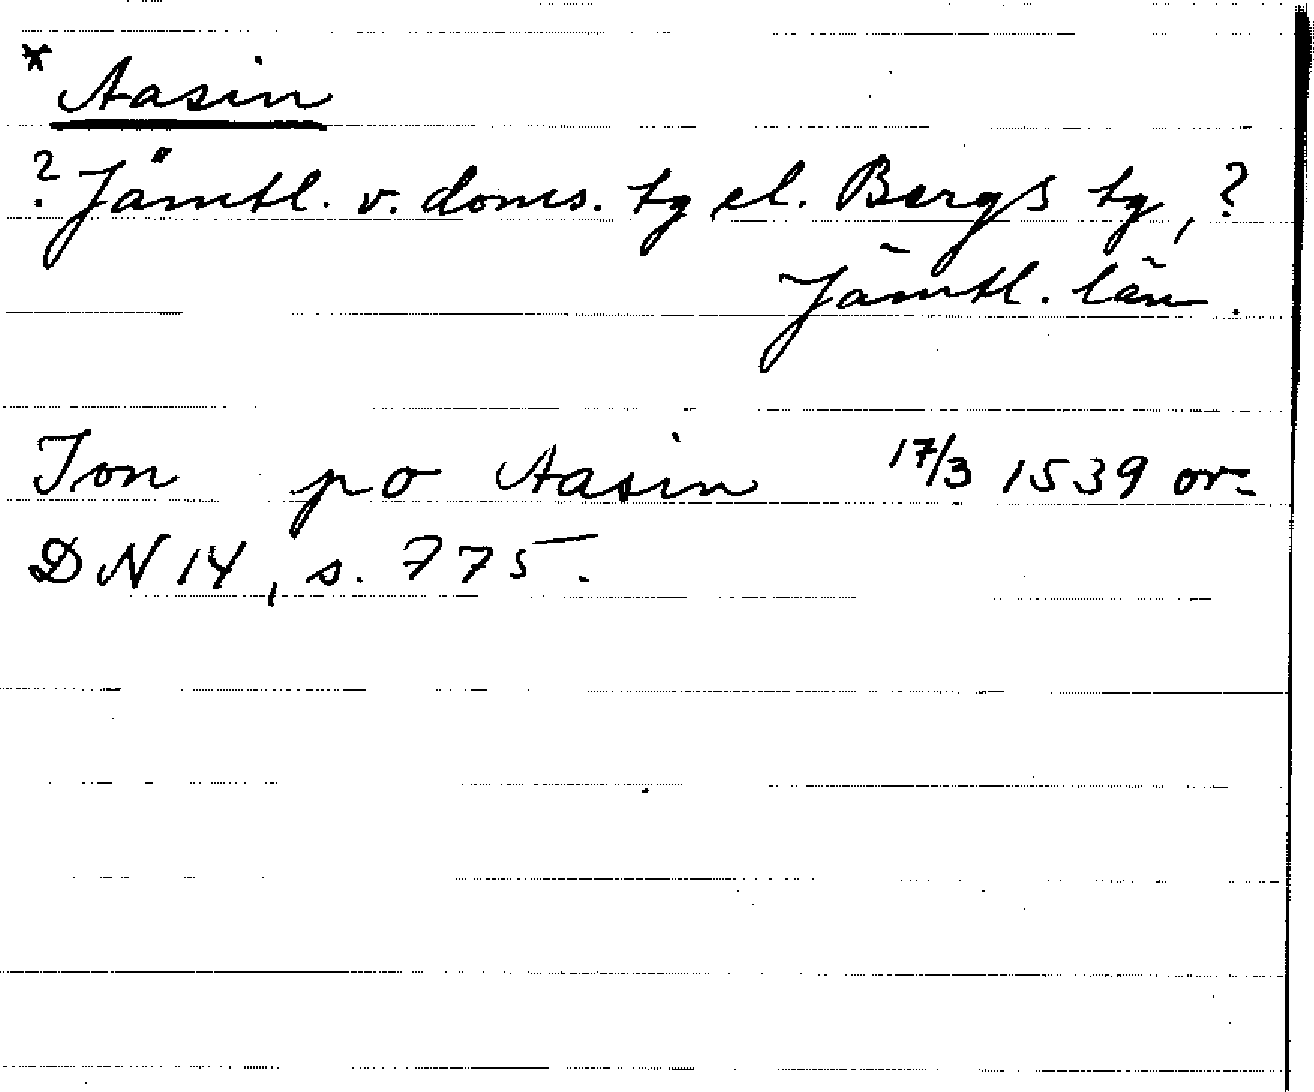 * Aasin
? Jämtl. v. doms. tg el. Bergs tg, ?
Jämtl. län.
Jon po Aasin 17/3 1539 or.
DN 14, s. 775.